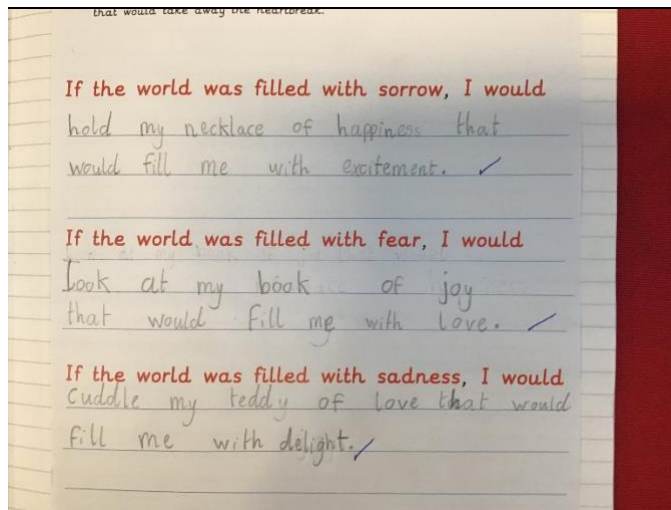 that would take away the heartbreak.
If the world was filled with sorrow, I would
hold my necklace of happiness that
would fill me with excitement.
If the world was filled with fear, I would
Look at my book of joy
that would fill me with love.
If the world was filled with sadness, I would
Cuddle my teddy of love that would
fill me with delight.